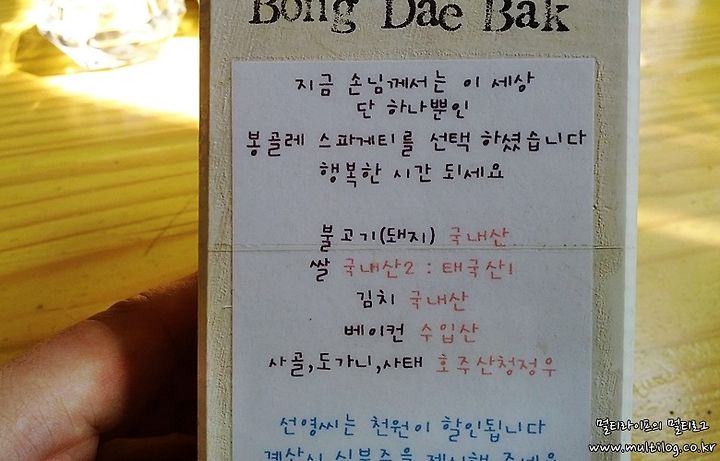 Bong Dae Bak
지금 손님께서는 이 세상
단 하나뿐인
봉골레 스파게티를 선택 하셨습니다
행복한 시간 되세요
불고기(돼지) 국내산
쌀 국내산2 : 태국산1
김치 국내산
베이컨 수입산
사골,도가니,사태 호주산청정우
선영씨는 천원이 할인됩니다
계산시 신분증을 제시해 주세요
멀티라이프의 멀티로그
www.multilog.co.kr